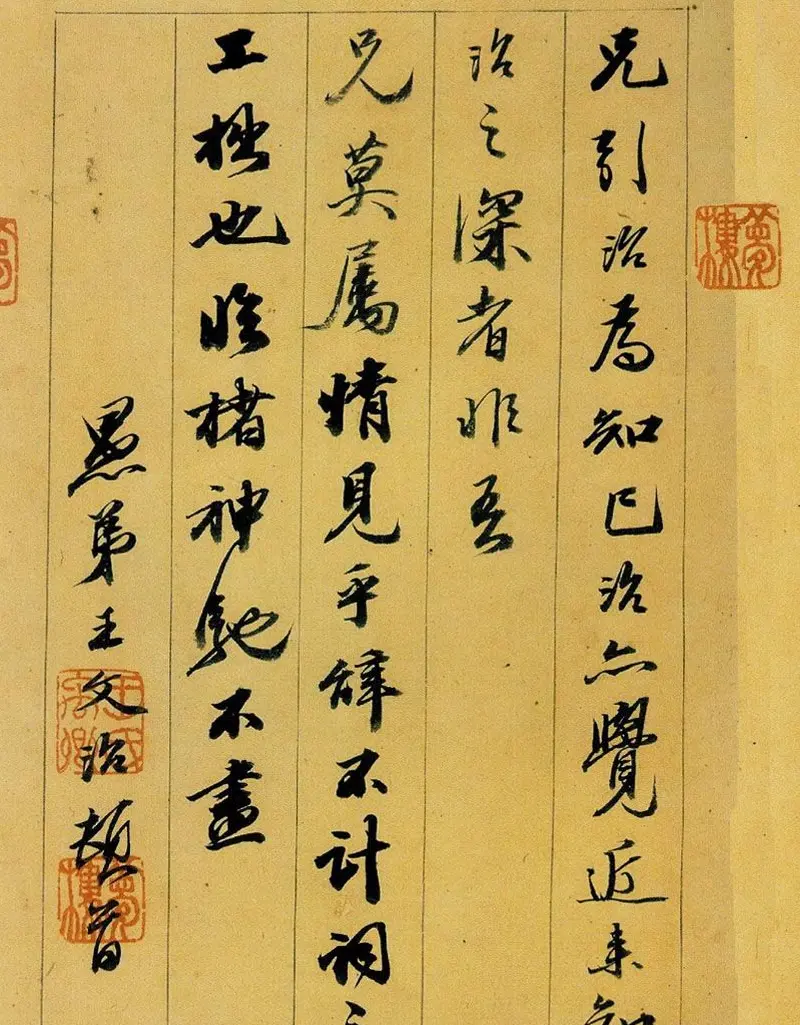 兄引治為知己治亦覺近来知
治之深者非吾
兄莫屬情見乎辭不計詞之
工拙也臨楮神馳不盡
愚弟王文治頓首
夢樓
夢樓